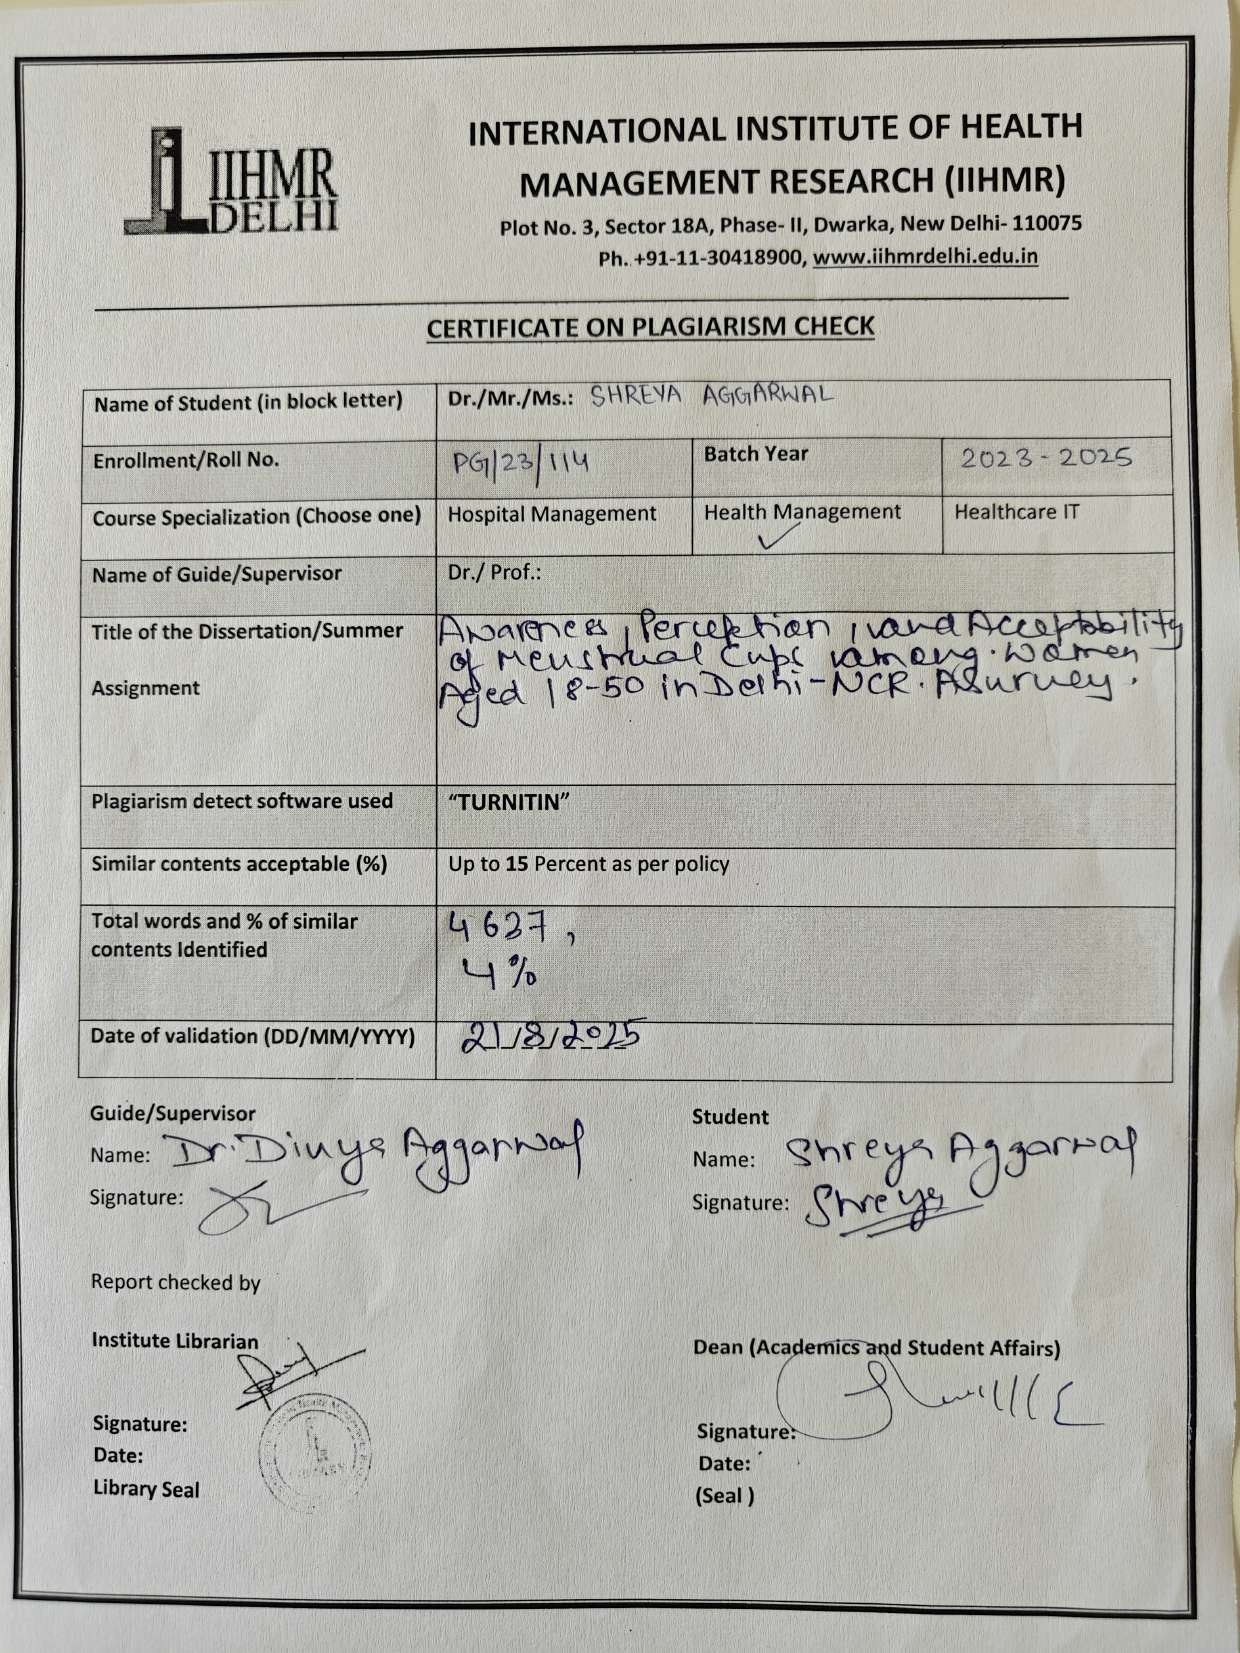 IIHMR
DELHI
INTERNATIONAL INSTITUTE OF HEALTH
MANAGEMENT RESEARCH (IIHMR)
Plot No. 3, Sector 18A, Phase- II, Dwarka, New Delhi- 110075
Ph. +91-11-30418900, www.iihmrdelhi.edu.in
CERTIFICATE ON PLAGIARISM CHECK
Name of Student (in block letter) Dr./Mr./Ms.: SHREYA AGGARWAL
Enrollment/Roll No. PG/23/114 Batch Year 2023-2025
Course Specialization (Choose one) Hospital Management Health Management ✓ Healthcare IT
Name of Guide/Supervisor Dr./ Prof.:
Title of the Dissertation/Summer Assignment
Awareness, Perception, and Acceptability
of Menstrual Cups among Women
Aged 18-50 in Delhi-NCR. A Survey.
Plagiarism detect software used "TURNITIN"
Similar contents acceptable (%) Up to 15 Percent as per policy
Total words and % of similar contents Identified
4637,
4%
Date of validation (DD/MM/YYYY) 21/8/2025
Guide/Supervisor
Name: Dr. Divya Aggarwal
Signature:
Student
Name: Shreya Aggarwal
Signature: Shreya
Report checked by
Institute Librarian
Signature:
Date:
Library Seal
Dean (Academics and Student Affairs)
Signature:
Date:
(Seal )